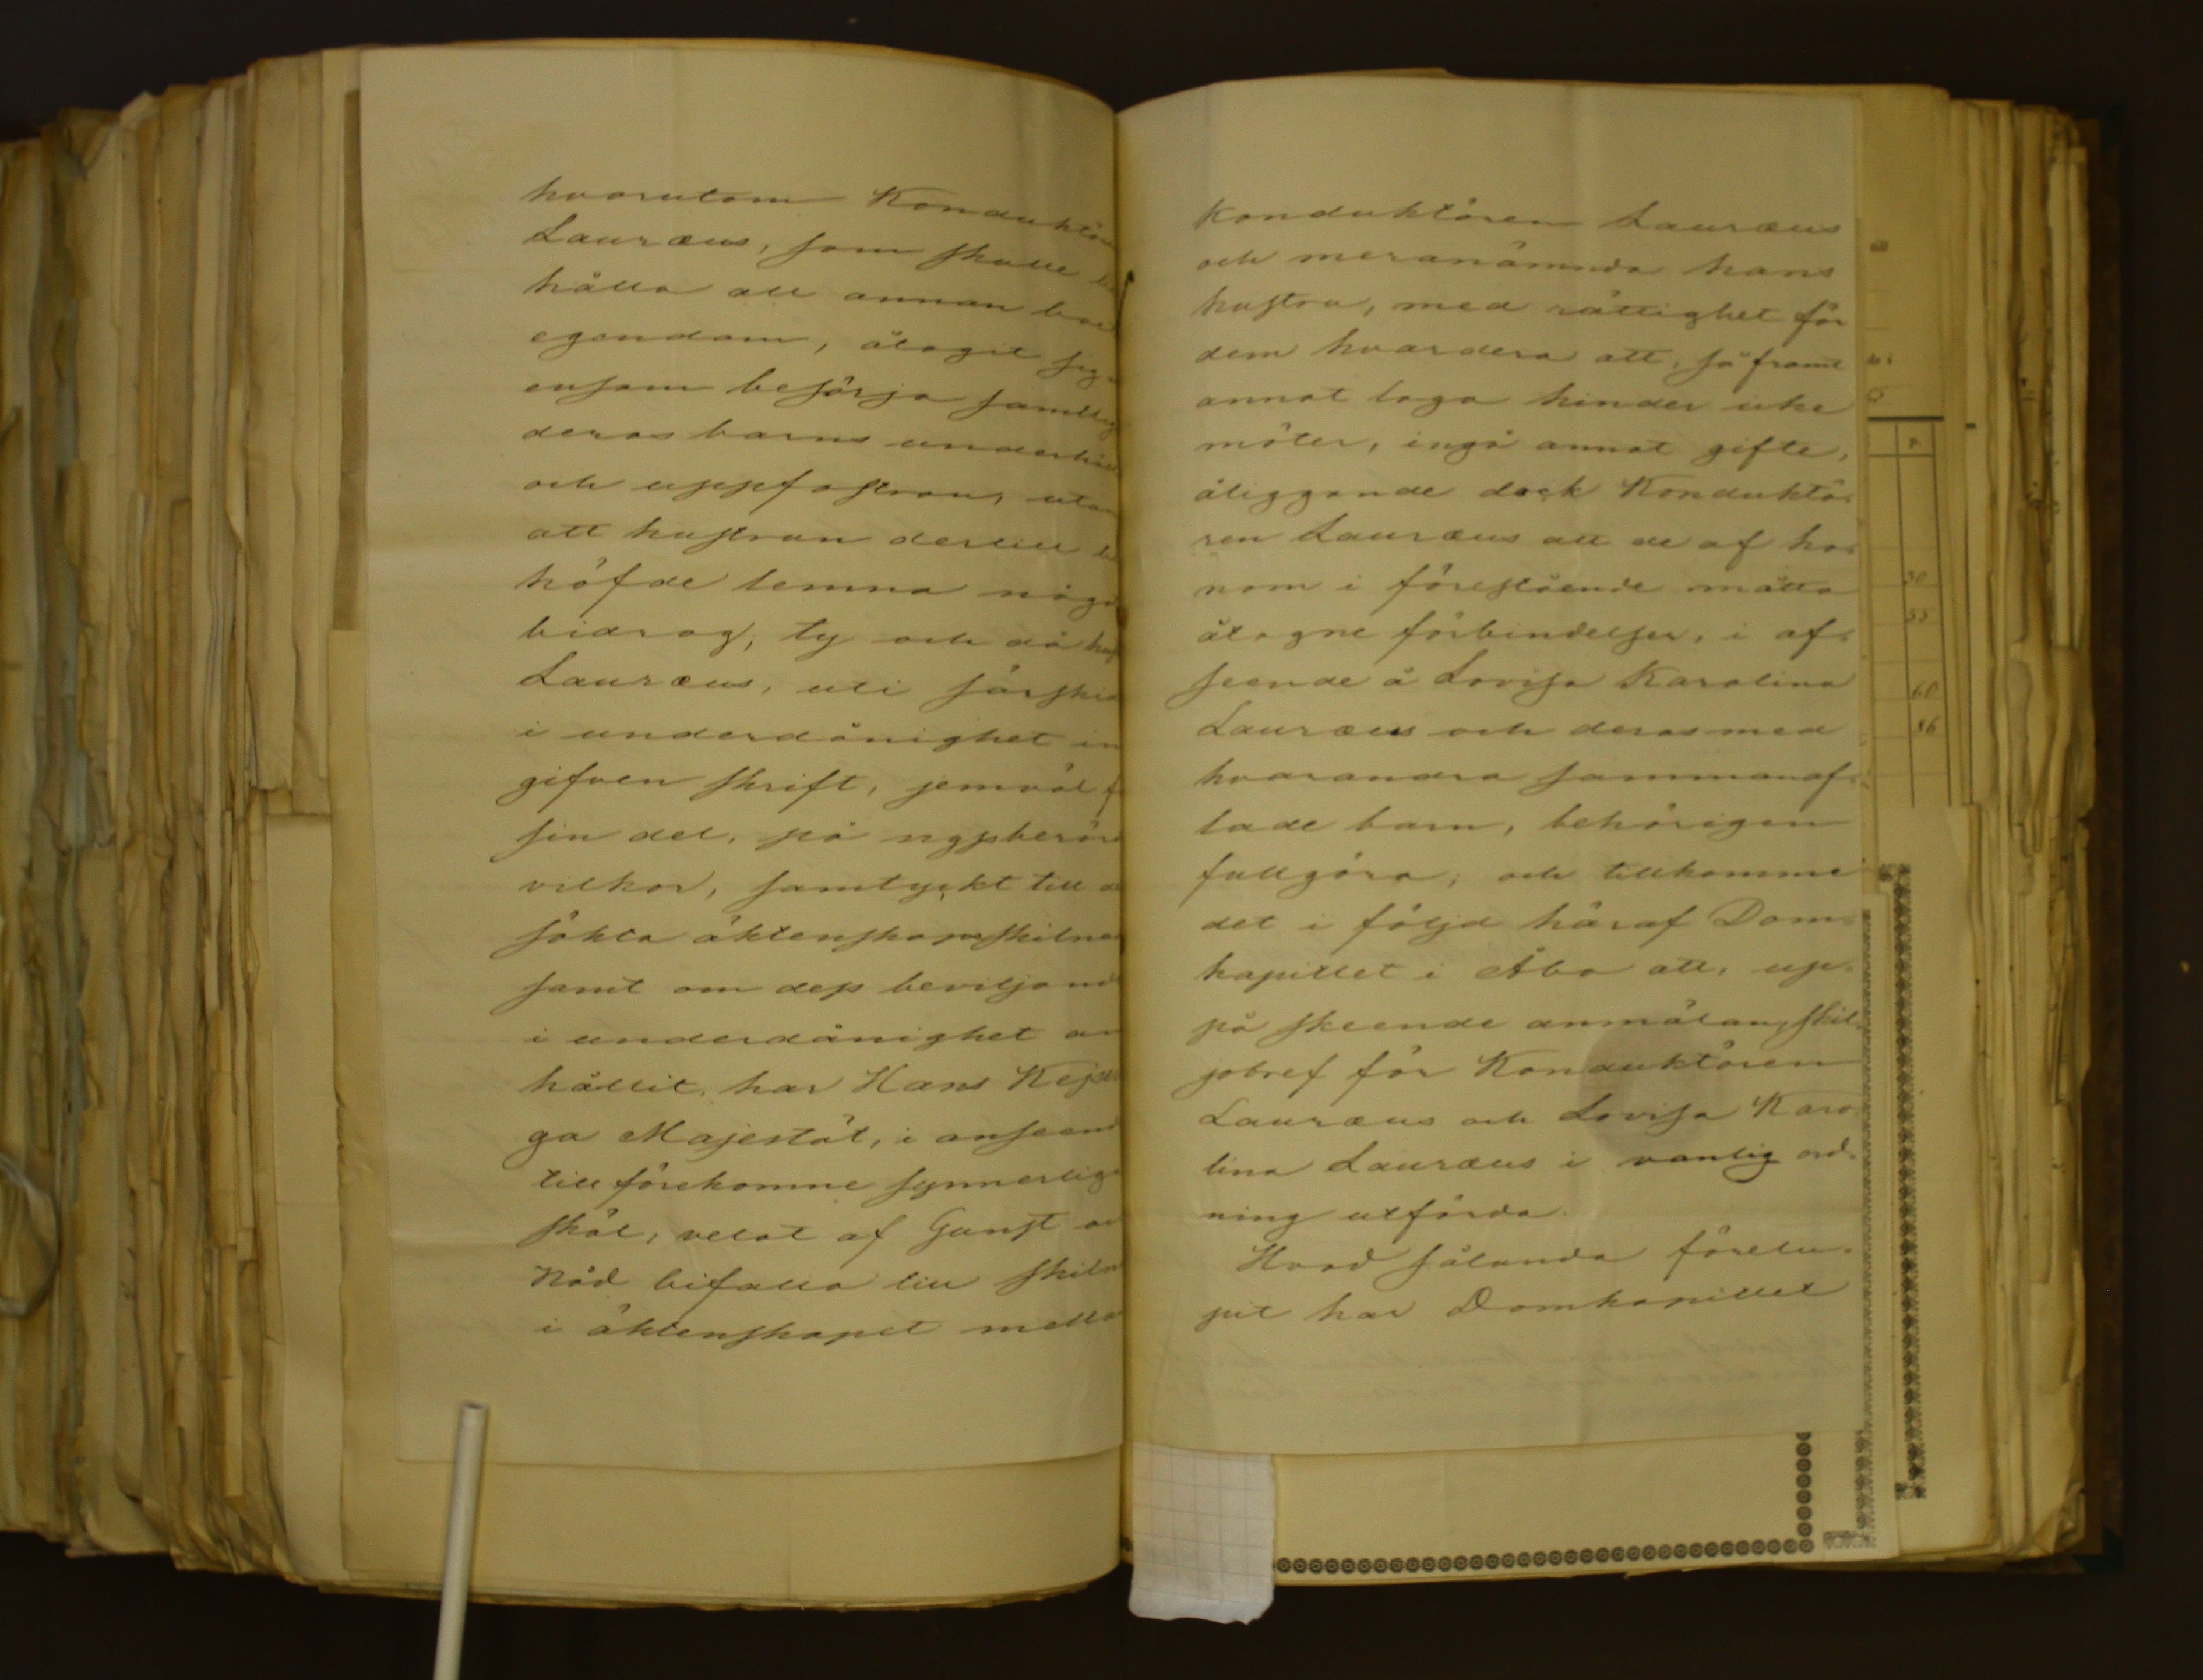 hvarutom Konduktöre
Lauræus, som skulle be
hålla all annan bo
egendom, åtagit sig
ensam besörja samtlig
deras barns underhåll
och uppfostran, utan
att hustrun dertill be
höfde lemna någo
bidrag; ty och då hus
Lauræus, uti särskild
i underdånighet in
gifven skrift, jemväl f
sin del, på uppberörd
vilkor, samtyckt till de
sökta äktenskapsskilnad
samt om dess beviljand
i underdånighet an
hållit, har Hans Kejserli
ga Majestät, i anseend
till förekomne synnerliga
skäl, velat af Gunst oc
Nåd bifalla till skilna
i äktenskapet mella
Konduktören Lauræus
och meranämnda hans
hustru, med rättighet för
dem hvardera att, så framt
annat laga hinder icke
möter, ingå annat gifte,
åliggande dock Konduktö-
ren Lauræus att de af ho-
nom i förestående måtto
åtagne förbindelser, i af-
seende å Lovisa Karolina
Lauræus och deras med
hvarandra sammanaf-
lade barn, behörigen
fullgöra; och tillkomme
det i följd häraf Dom-
kapitlet i Åbo att, up-
på skeende anmälan, skil-
jobref för Konduktören
Lauræus och Lovisa Karo-
lina Lauræus i vanlig ord-
ning utfärda.
Hvad sålunda förelu-
pit har Domkapitlet
50
55
60
86